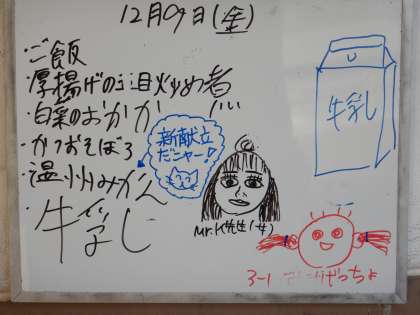 12月09日(金)
・ご飯
・厚揚げの 炒め煮
・白菜のおかか
・かつおそぼろ
・温州みかん
・牛乳
新献立
だニャー!
Mr.K先生(女)
牛乳
3-1